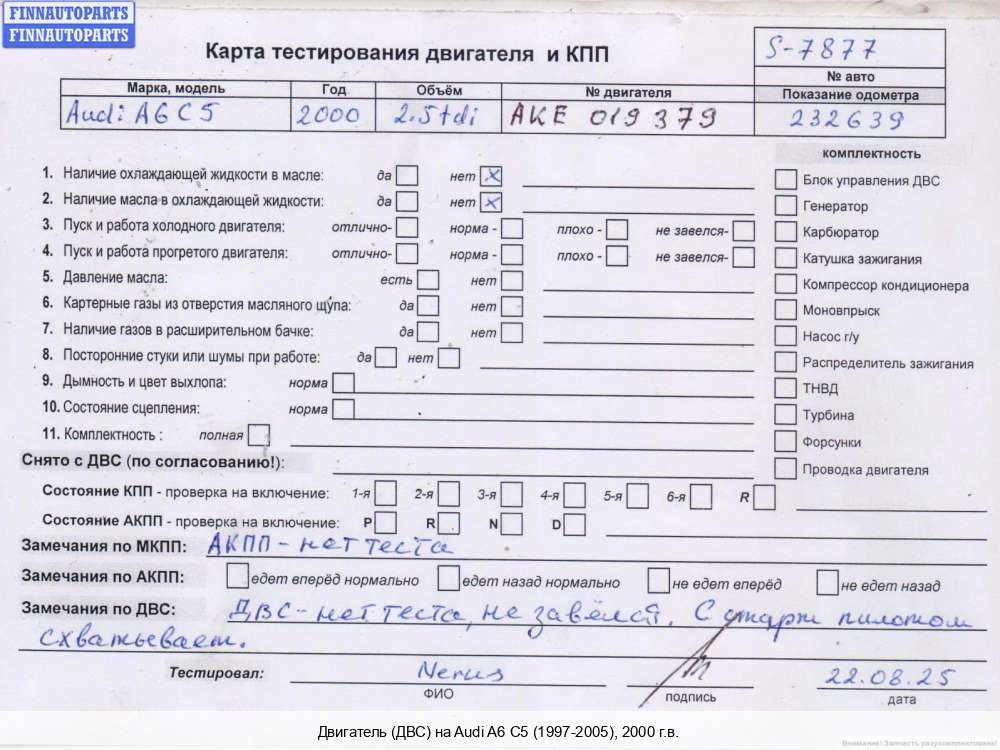 FINNAUTOPARTS
FINNAUTOPARTS
Карта тестирования двигателя и КПП
S-7877
№ авто
Марка, модель Год Объём № двигателя Показание одометра
Audi A6 C5 2000 2.5tdi AKE 019379 232639
комплектность
1. Наличие охлаждающей жидкости в масле: да нет x
Блок управления ДВС
2. Наличие масла в охлаждающей жидкости: да нет x
Генератор
3. Пуск и работа холодного двигателя: отлично- норма - плохо - не завелся-
Карбюратор
4. Пуск и работа прогретого двигателя: отлично- норма - плохо - не завелся-
Катушка зажигания
5. Давление масла: есть нет
Компрессор кондиционера
6. Картерные газы из отверстия масляного щупа: да нет
Моновпрыск
7. Наличие газов в расширительном бачке: да нет
Насос г/у
8. Посторонние стуки или шумы при работе: да нет
Распределитель зажигания
9. Дымность и цвет выхлопа: норма
ТНВД
10. Состояние сцепления: норма
Турбина
11. Комплектность : полная
Форсунки
Снято с ДВС (по согласованию!):
Проводка двигателя
Состояние КПП - проверка на включение: 1-я 2-я 3-я 4-я 5-я 6-я R
Состояние АКПП - проверка на включение: P R N D
Замечания по МКПП: АКПП - нет теста
Замечания по АКПП: едет вперёд нормально едет назад нормально не едет вперёд не едет назад
Замечания по ДВС: ДВС - нет теста, не завёлся. С старт пилотом
схватывает.
Тестировал: Nerus 22.08.25
ФИО подпись дата
Двигатель (ДВС) на Audi A6 C5 (1997-2005), 2000 г.в.
Внимание! Запчасть разукомплектована!